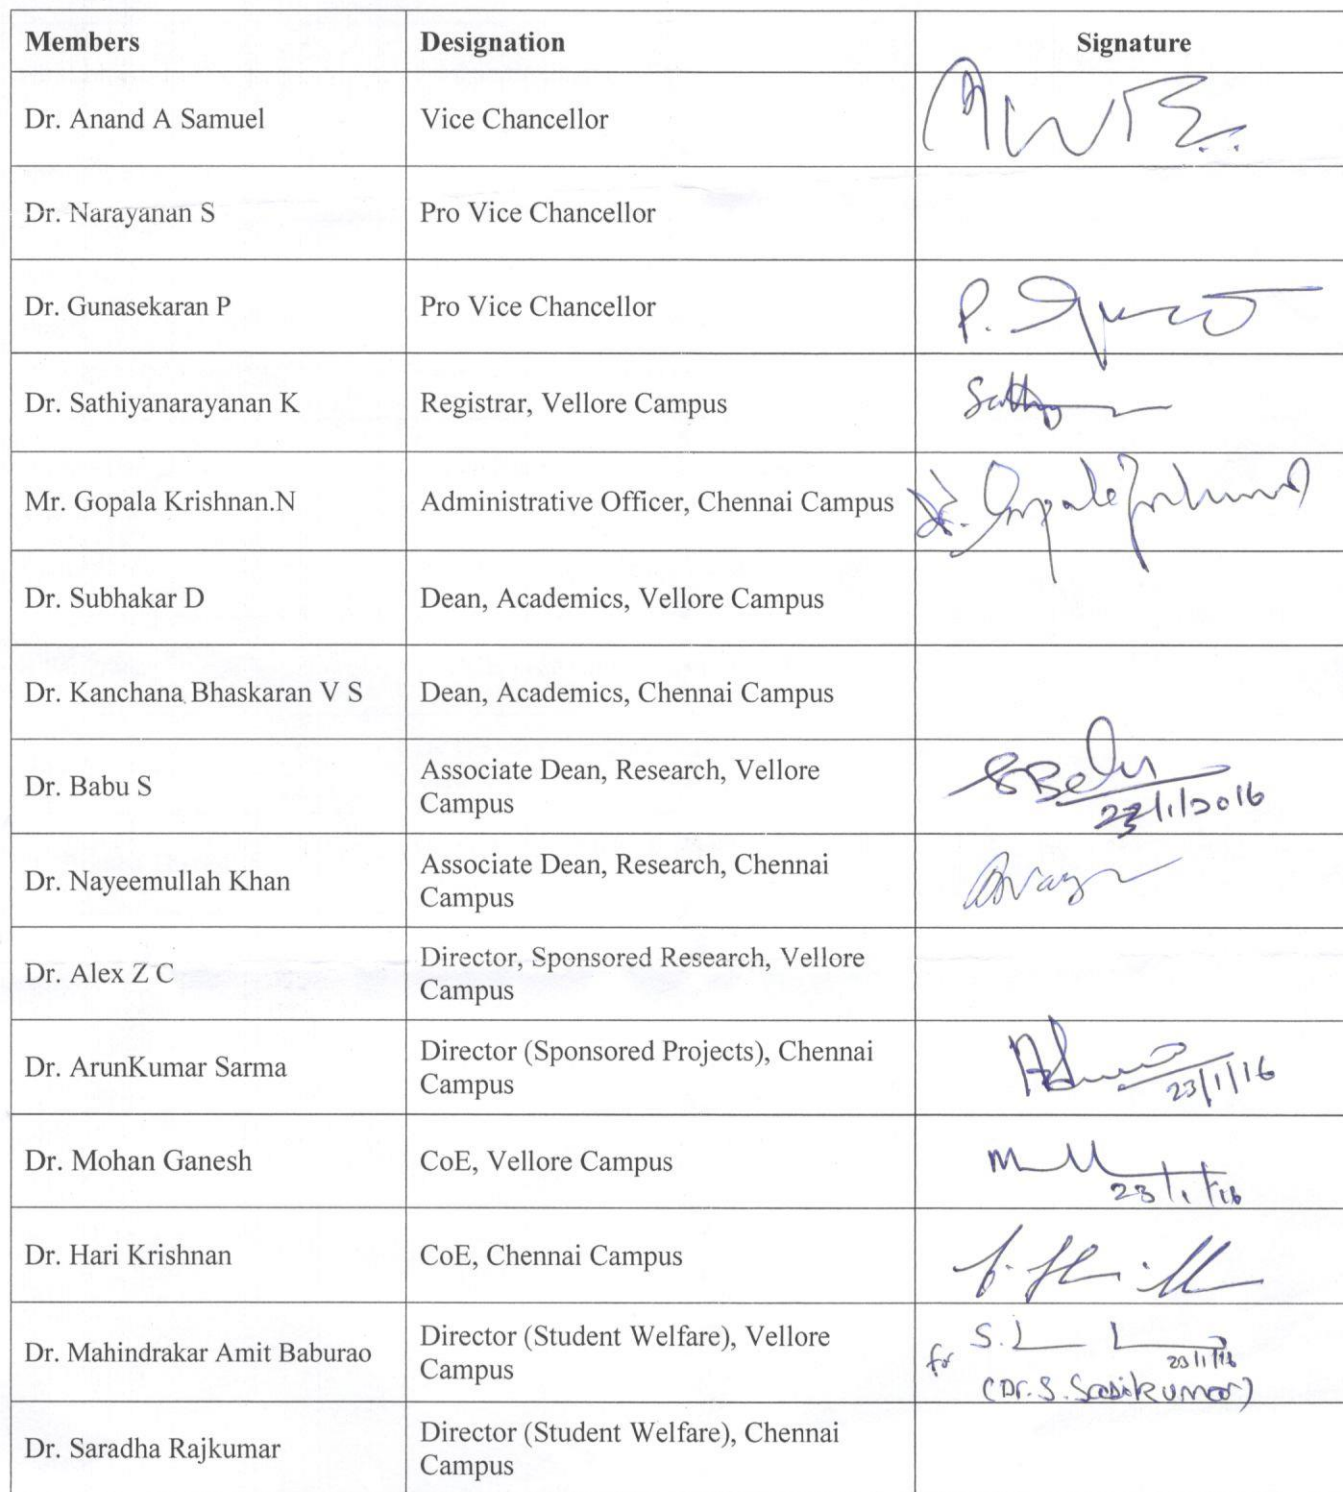 Members Designation Signature
Dr. Anand A Samuel Vice Chancellor
Dr. Narayanan S Pro Vice Chancellor
Dr. Gunasekaran P Pro Vice Chancellor P.
Dr. Sathiyanarayanan K Registrar, Vellore Campus Sathy
Mr. Gopala Krishnan.N Administrative Officer, Chennai Campus
Dr. Subhakar D Dean, Academics, Vellore Campus
Dr. Kanchana Bhaskaran V S Dean, Academics, Chennai Campus
Dr. Babu S Associate Dean, Research, Vellore
Campus
23/1/2016
Dr. Nayeemullah Khan Associate Dean, Research, Chennai
Campus
Dr. Alex Z C Director, Sponsored Research, Vellore
Campus
Dr. ArunKumar Sarma Director (Sponsored Projects), Chennai
Campus
23/1/16
Dr. Mohan Ganesh CoE, Vellore Campus
23/1/16
Dr. Hari Krishnan CoE, Chennai Campus
Dr. Mahindrakar Amit Baburao Director (Student Welfare), Vellore
Campus
for S.
23/1/16
(Dr. S. Sasikumar)
Dr. Saradha Rajkumar Director (Student Welfare), Chennai
Campus